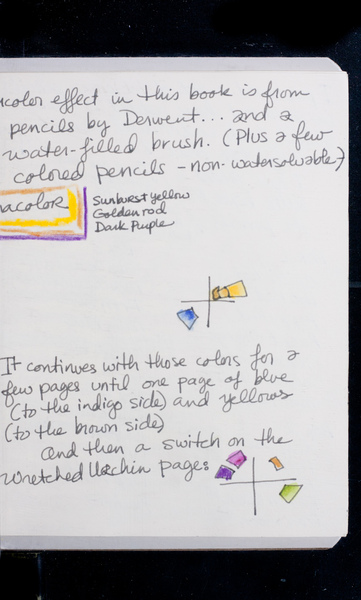 color effect in this book is from
pencils by Derwent... and a
water-filled brush. (Plus a few
colored pencils - non-watersolvable)
acolor
Sunburst yellow
Goldenrod
Dark Purple
It continues with those colors for a
few pages until one page of blue
(to the indigo side) and yellows
(to the brown side)
and then a switch on the
Wretched Urchin page: